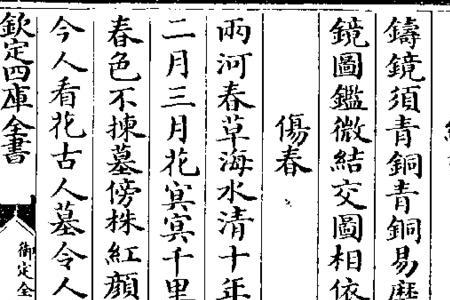 鑄鏡須青銅青銅易磨
鏡圖鑑微結交圖相依
傷春
兩河春草海水清十年
二月三月花冥冥千里
春色不揀墓傍株紅顔
今人看花古人墓令人
欽定四庫全書
御定全